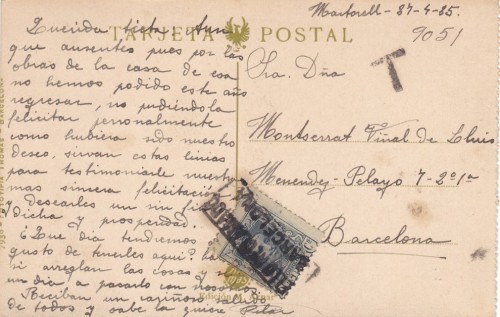 Martorell - 27-4-35.
9051
TARJETA POSTAL
T
Querida tieta: Aun
que ausentes pues por las
obras de la casa de esa
no hemos podido este año
regresar, no pudiéndola
felicitar personalmente
como hubiera sido nuestro
deseo, sirvan estas líneas
para testimoniarle nuestra
mas sincera felicitación
y desearles un sin fin
dicha y prosperidad.
¿Que dia tendremos
gusto de tenerles aqui?
si arreglan las cosas y
un dia, a pasarlo con nosotros
Reciban un cariñoso saludo
de todos y sabe la quiere Pilar
Sra. Dña
Montserrat Viñal de Lluis
Menendez-Pelayo 7-2º1ª
Barcelona
BARCELONA
Edición